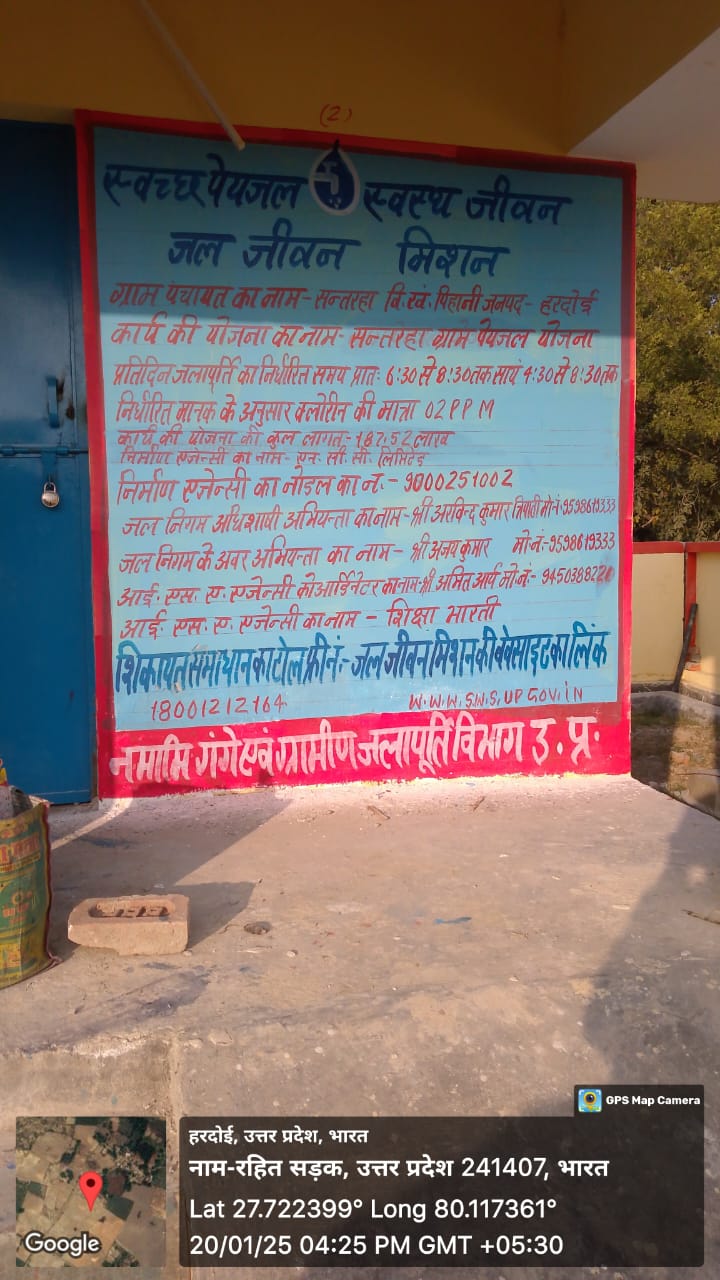 (2)
स्वच्छ पेयजल स्वस्थ जीवन
जल जीवन मिशन
ग्राम पंचायत का नाम - सन्तरहा वि.खं. पिहानी जनपद - हरदोई
कार्य की योजना का नाम - सन्तरहा ग्राम पेयजल योजना
प्रतिदिन जलापूर्ति का निर्धारित समय प्रातः 6:30 से 8:30 तक सायं 4:30 से 8:30 तक
निर्धारित मानक के अनुसार क्लोरीन की मात्रा 02 PPM
कार्य की योजना की कुल लागत - 187.52 लाख
निर्माण एजेन्सी का नाम - एन. सी. सी. लिमिटेड
निर्माण एजेन्सी का नोडल का नं. - 9000251002
जल निगम अधिशाषी अभियन्ता का नाम - श्री अरविन्द कुमार त्रिपाठी मो.नं. 9598619333
जल निगम के अवर अभियन्ता का नाम - श्री अजय कुमार मो.नं. - 9598619333
आई. एस. ए. एजेन्सी कोआर्डिनेटर का नाम श्री अमित आर्य मो.नं. -
आई. एस. ए. एजेन्सी का नाम - शिक्षा भारती
शिकायत समाधान का टोल फ्री नं. - जल जीवन मिशन की वेबसाइट का लिंक
18001212164 W.W.W.SWS.UP GOV.iN
नमामि गंगे एवं ग्रामीण जलापूर्ति विभाग उ. प्र.
GPS Map Camera
हरदोई, उत्तर प्रदेश, भारत
नाम-रहित सड़क, उत्तर प्रदेश 241407, भारत
Lat 27.722399° Long 80.117361°
20/01/25 04:25 PM GMT +05:30
Google